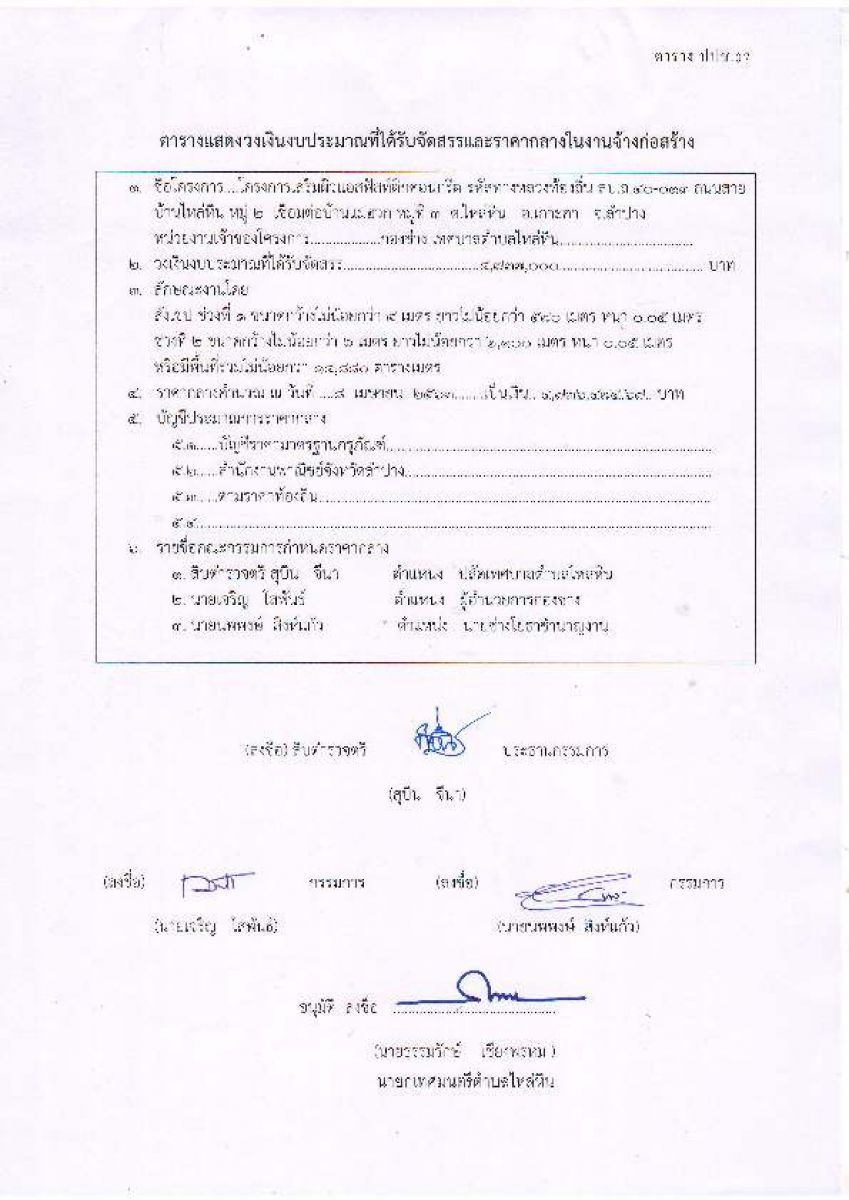 ตาราง ปปช.๐๑
ตารางแสดงวงเงินงบประมาณที่ได้รับจัดสรรและราคากลางในงานจ้างก่อสร้าง
๑. ชื่อโครงการ....โครงการเสริมผิวแอสฟัลท์ติกคอนกรีต รหัสทางหลวงท้องถิ่น ลป.ถ ถนนสาย
บ้านไหล่หิน หมู่ ๒ เชื่อมต่อบ้านแม่ฮวก หมู่ที่ ๓ ต.ไหล่หิน อ.เกาะคา จ.ลำปาง
หน่วยงานเจ้าของโครงการ....................กองช่าง เทศบาลตำบลไหล่หิน......................................
๒. วงเงินงบประมาณที่ได้รับจัดสรร....................................... บาท
๓. ลักษณะงานโดย
สังเขป ช่วงที่ ๑ ขนาดกว้างไม่น้อยกว่า ๘ เมตร ยาวไม่น้อยกว่า เมตร หนา ๐.๐๕ เมตร
ช่วงที่ ๒ ขนาดกว้างไม่น้อยกว่า ๖ เมตร ยาวไม่น้อยกว่า เมตร หนา ๐.๐๕ เมตร
หรือมีพื้นที่รวมไม่น้อยกว่า ตารางเมตร
๔. ราคากลางคำนวณ ณ วันที่ ....๘ เมษายน ๒๕๖๓........เป็นเงิน.. บาท
๕. บัญชีประมาณการราคากลาง
๕.๑.....บัญชีราคามาตรฐานครุภัณฑ์....................
๕.๒.....สำนักงานพาณิชย์จังหวัดลำปาง....................
๕.๓.....ตามราคาท้องถิ่น....................
๕.๔....................
๖. รายชื่อคณะกรรมการกำหนดราคากลาง
๑. สิบตำรวจตรี สุบิน จีนา ตำแหน่ง ปลัดเทศบาลตำบลไหล่หิน
๒. นายเจริญ โสพันธ์ ตำแหน่ง ผู้อำนวยการกองช่าง
๓. นายนพพงษ์ สิงห์แก้ว ตำแหน่ง นายช่างโยธาชำนาญงาน
(ลงชื่อ) สิบตำรวจตรี ประธานกรรมการ
(สุบิน จีนา)
(ลงชื่อ) กรรมการ (ลงชื่อ) กรรมการ
(นายเจริญ โสพันธ์) (นายนพพงษ์ สิงห์แก้ว)
อนุมัติ ลงชื่อ ..............................
(นายธรรมรักษ์ เขียวพรหม)
นายกเทศมนตรีตำบลไหล่หิน